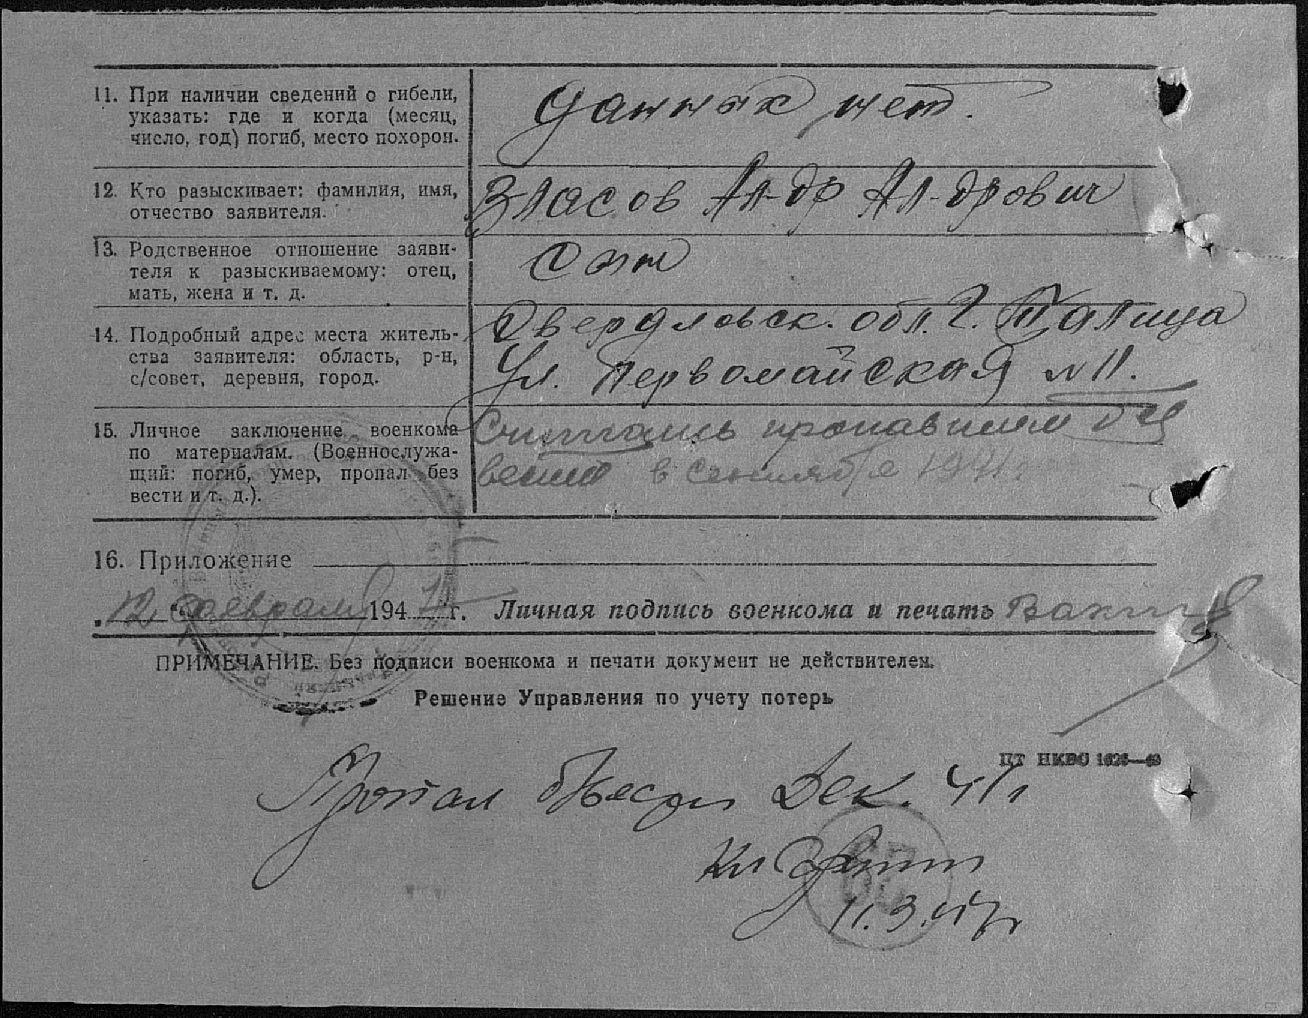 11. При наличии сведений о гибели,
указать: где и когда (месяц,
число, год) погиб, место похорон.
данных нет.
12. Кто разыскивает: фамилия, имя,
отчество заявителя.
Власов Ал-др Ал-дрович
13. Родственное отношение заяви-
теля к разыскиваемому: отец,
мать, жена и т. д.
сын
14. Подробный адрес места житель-
ства заявителя: область, р-н,
с/совет, деревня, город.
Свердловск. обл. г. Талица
ул. Первомайская № 11.
15. Личное заключение военкома
по материалам. (Военнослужа-
щий: погиб, умер, пропал без
вести и т. д.).
Считать пропавшим без
вести в сентябре 1941 г.
16. Приложение
12 февраля 194 7 г. Личная подпись военкома и печать
ПРИМЕЧАНИЕ. Без подписи военкома и печати документ не действителен.
Решение Управления по учету потерь
ЦТ НКВС 1626—40
Пропал б/вести Дек. 41 г
11.3.47г